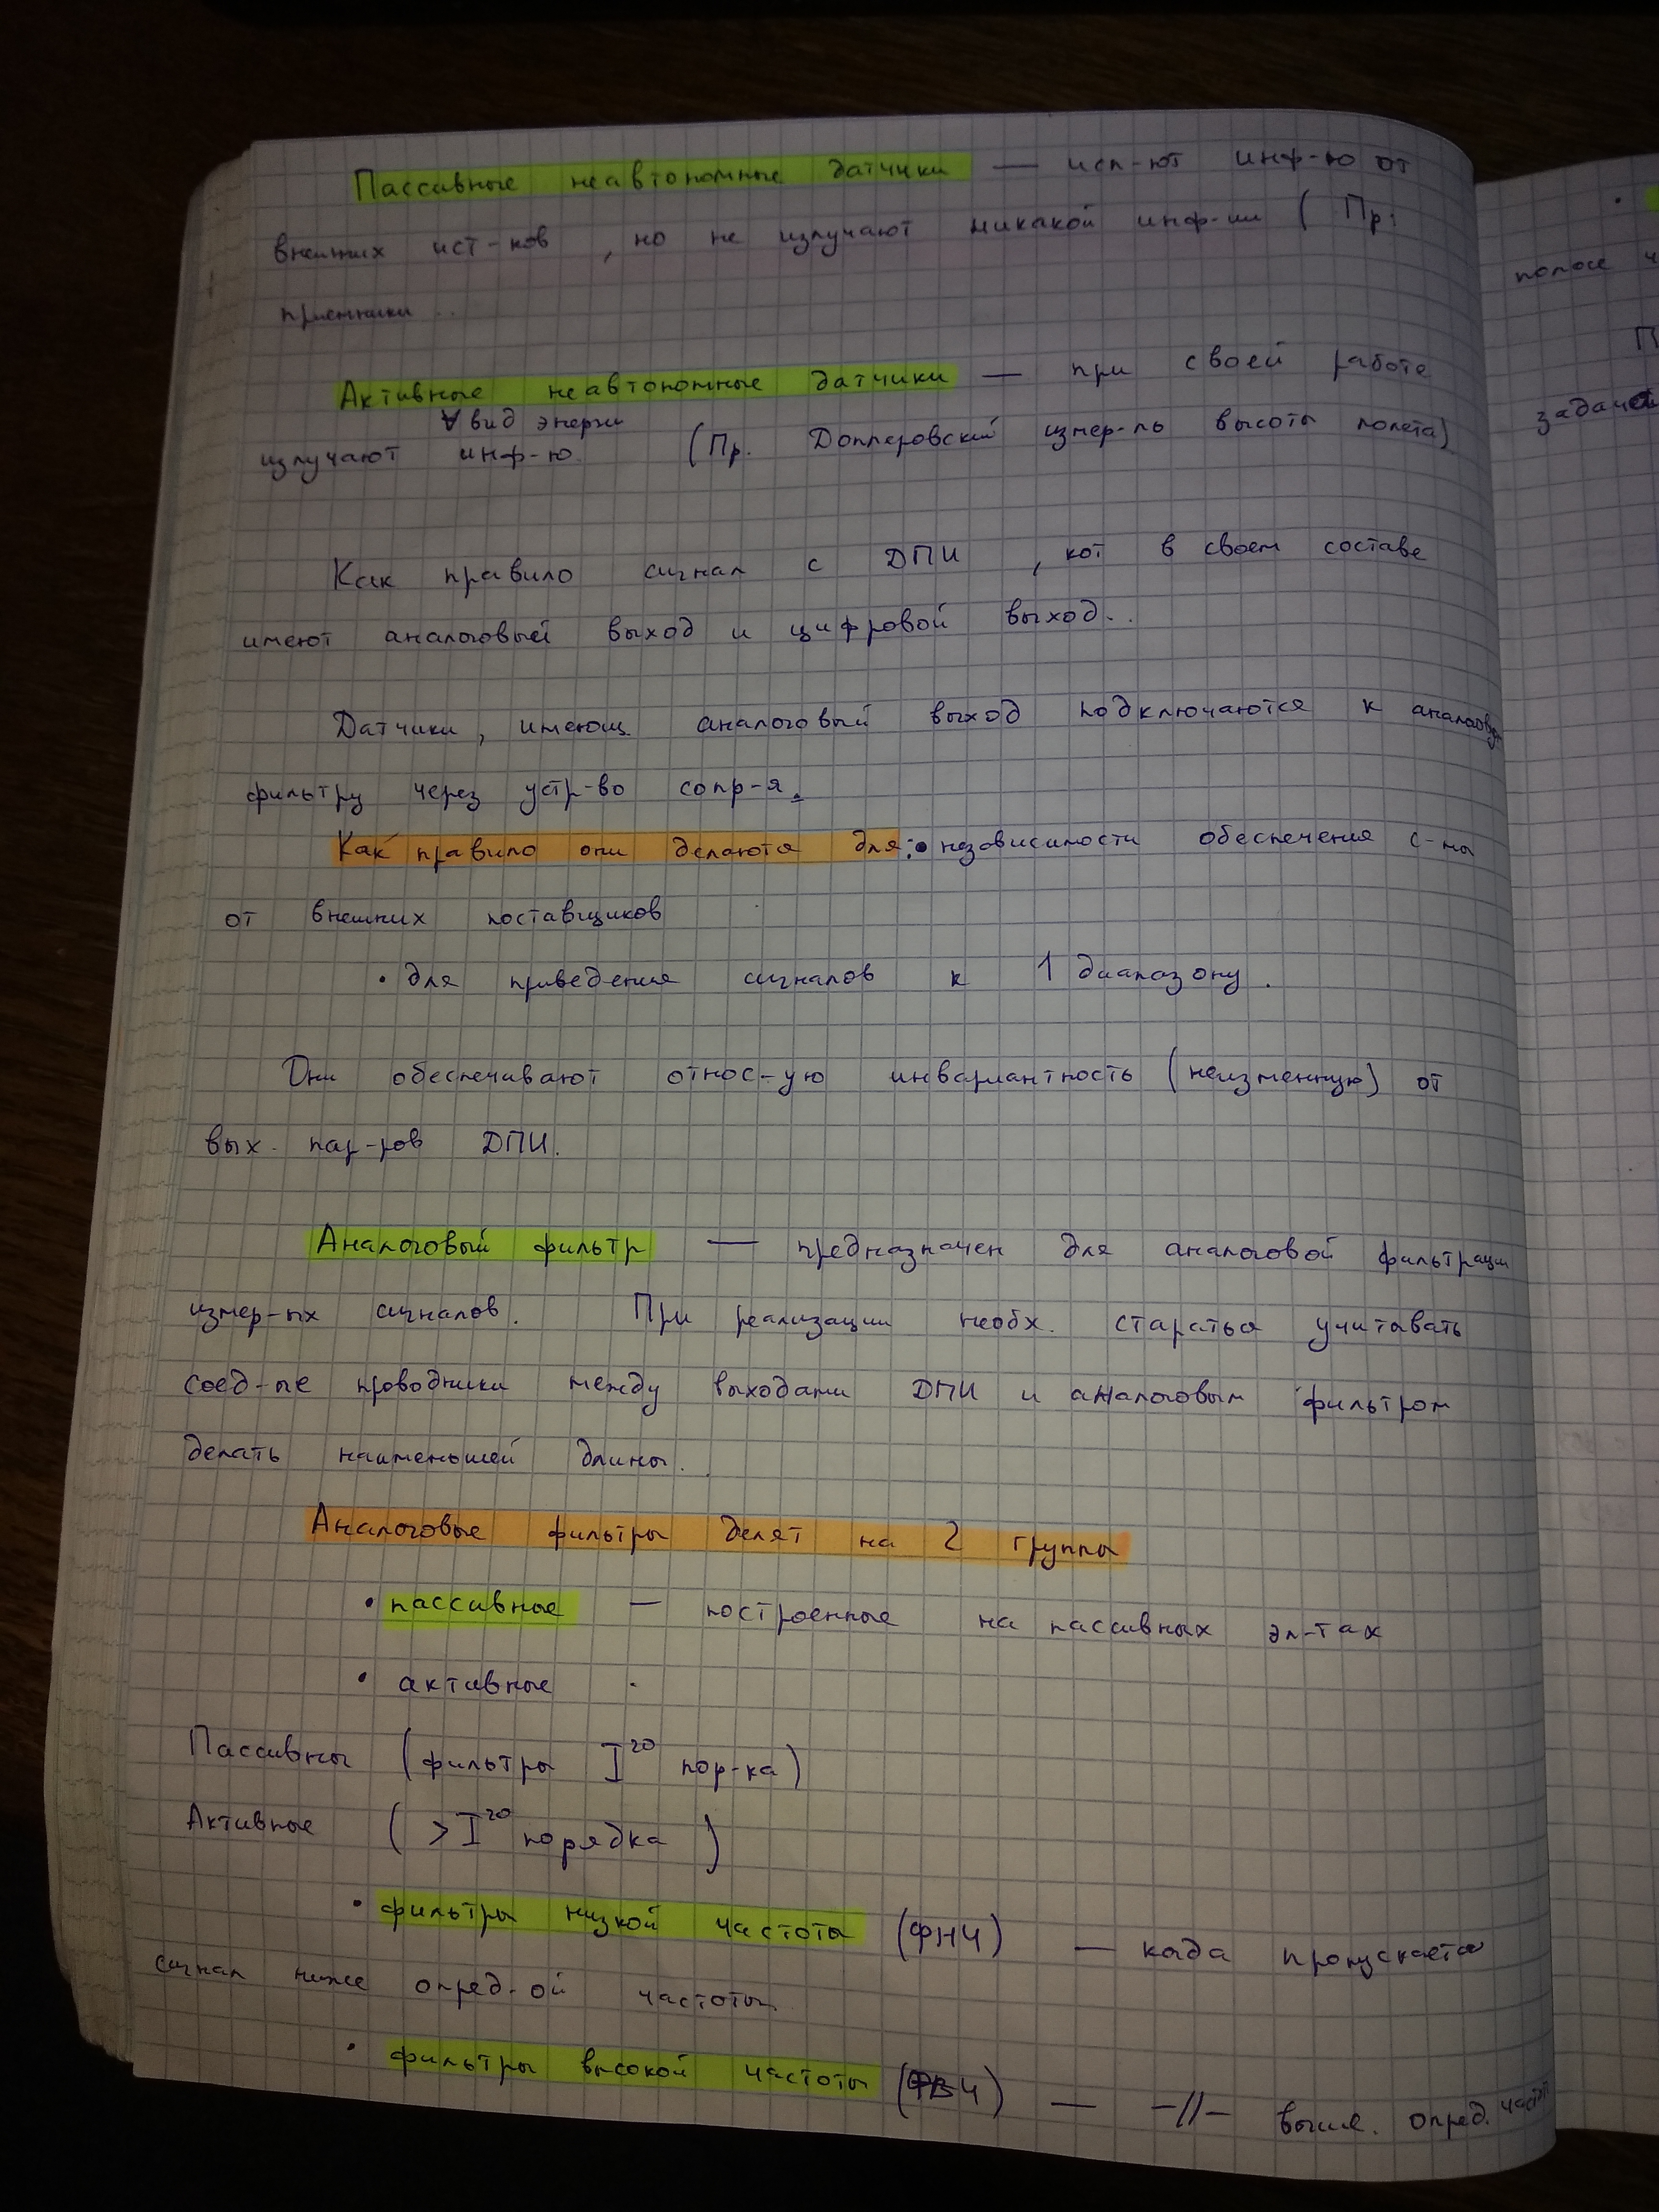 Пассивные неавтономные датчики — исп-ют инф-ю от
внешних ист-ков , но не излучают никакой инф-ии ( Пр.
приемники ..
Активные неавтономные датчики — при своей работе
∀ вид энергии
излучают инф-ю. (Пр. Доплеровский измер-ль высоты полета)
Как правило сигнал с ДПИ , кот в своем составе
имеют аналоговый выход и цифровой выход..
Датчики, имеющ. аналоговый выход подключаются к аналоговум
фильтру через устр-во сопр-я.
Как правило они делаются для: • независимости обеспечения с-мы
от внешних поставщиков
• для приведения сигналов к 1 диапазону.
Они обеспечивают относ-ую инвариантность (неизменную) от
вых. пар-ров ДПИ.
Аналоговый фильтр — предназначен для аналоговой фильтрации
измер-ых сигналов. При реализации необх. стараться учитывать
соед-ые проводники между выходами ДПИ и аналоговым фильтром
делать наименьшей длины.
Аналоговые фильтры делят на 2 группы
• пассивные — построенные на пассивных эл-тах
• активные
Пассивны (фильтры I го пор-ка)
Активные ( > I го порядка )
• фильтры низкой частоты (ФНЧ) — когда пропускается
сигнал ниже опред-ой частоты.
• фильтры высокой частоты (ФВЧ) — —//— выше. опред. частот
полосе ч
П
задача